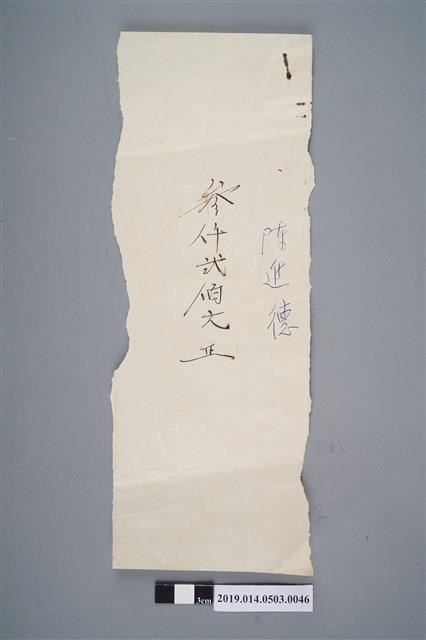 陳進德
參仟弍佰元正
3cm
2019.014.0503.0046